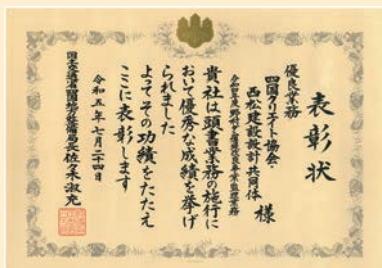 表彰状
優良業務
四国クリエイト協会・
西松建設設計共同体 様
貴社は頭書業務の施行に
おいて優秀な成績を挙げ
られました
よってその功績をたたえ
ここに表彰します
令和五年七月二十四日
国土交通省四国地方整備局長 佐々木淑充